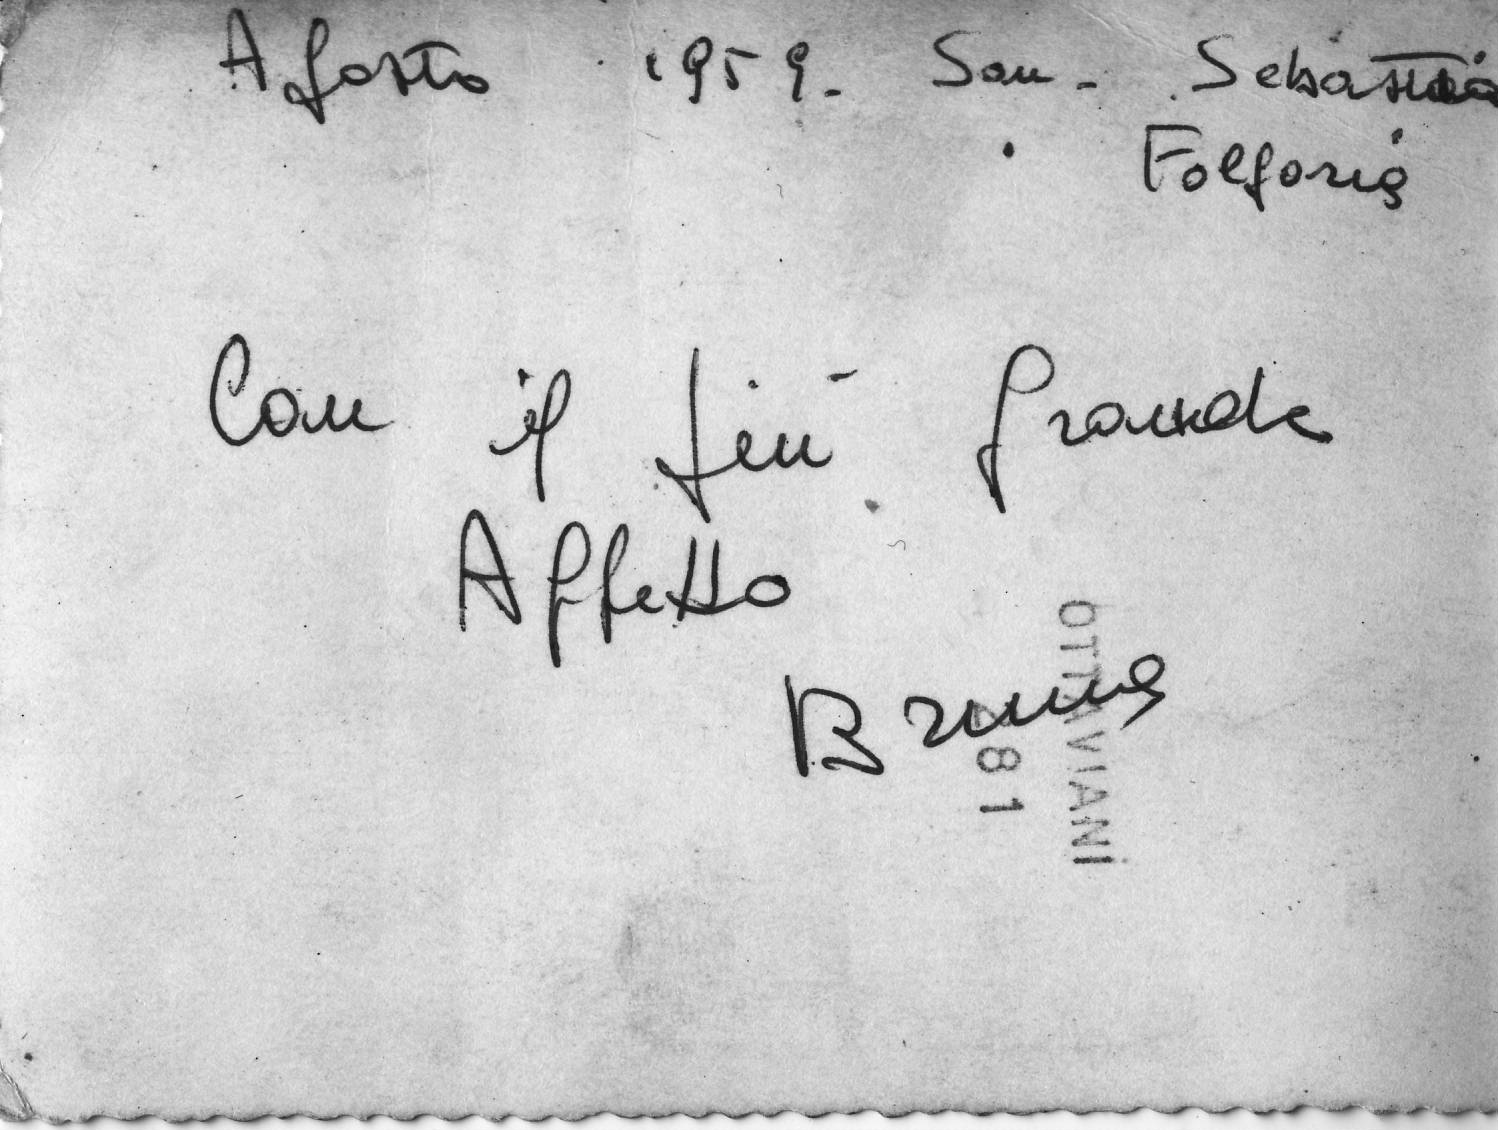 Agosto 1959. San - Sebastiano
Folgoria
Con il più grande
Affetto
Bruna
OTTAVIANI
81